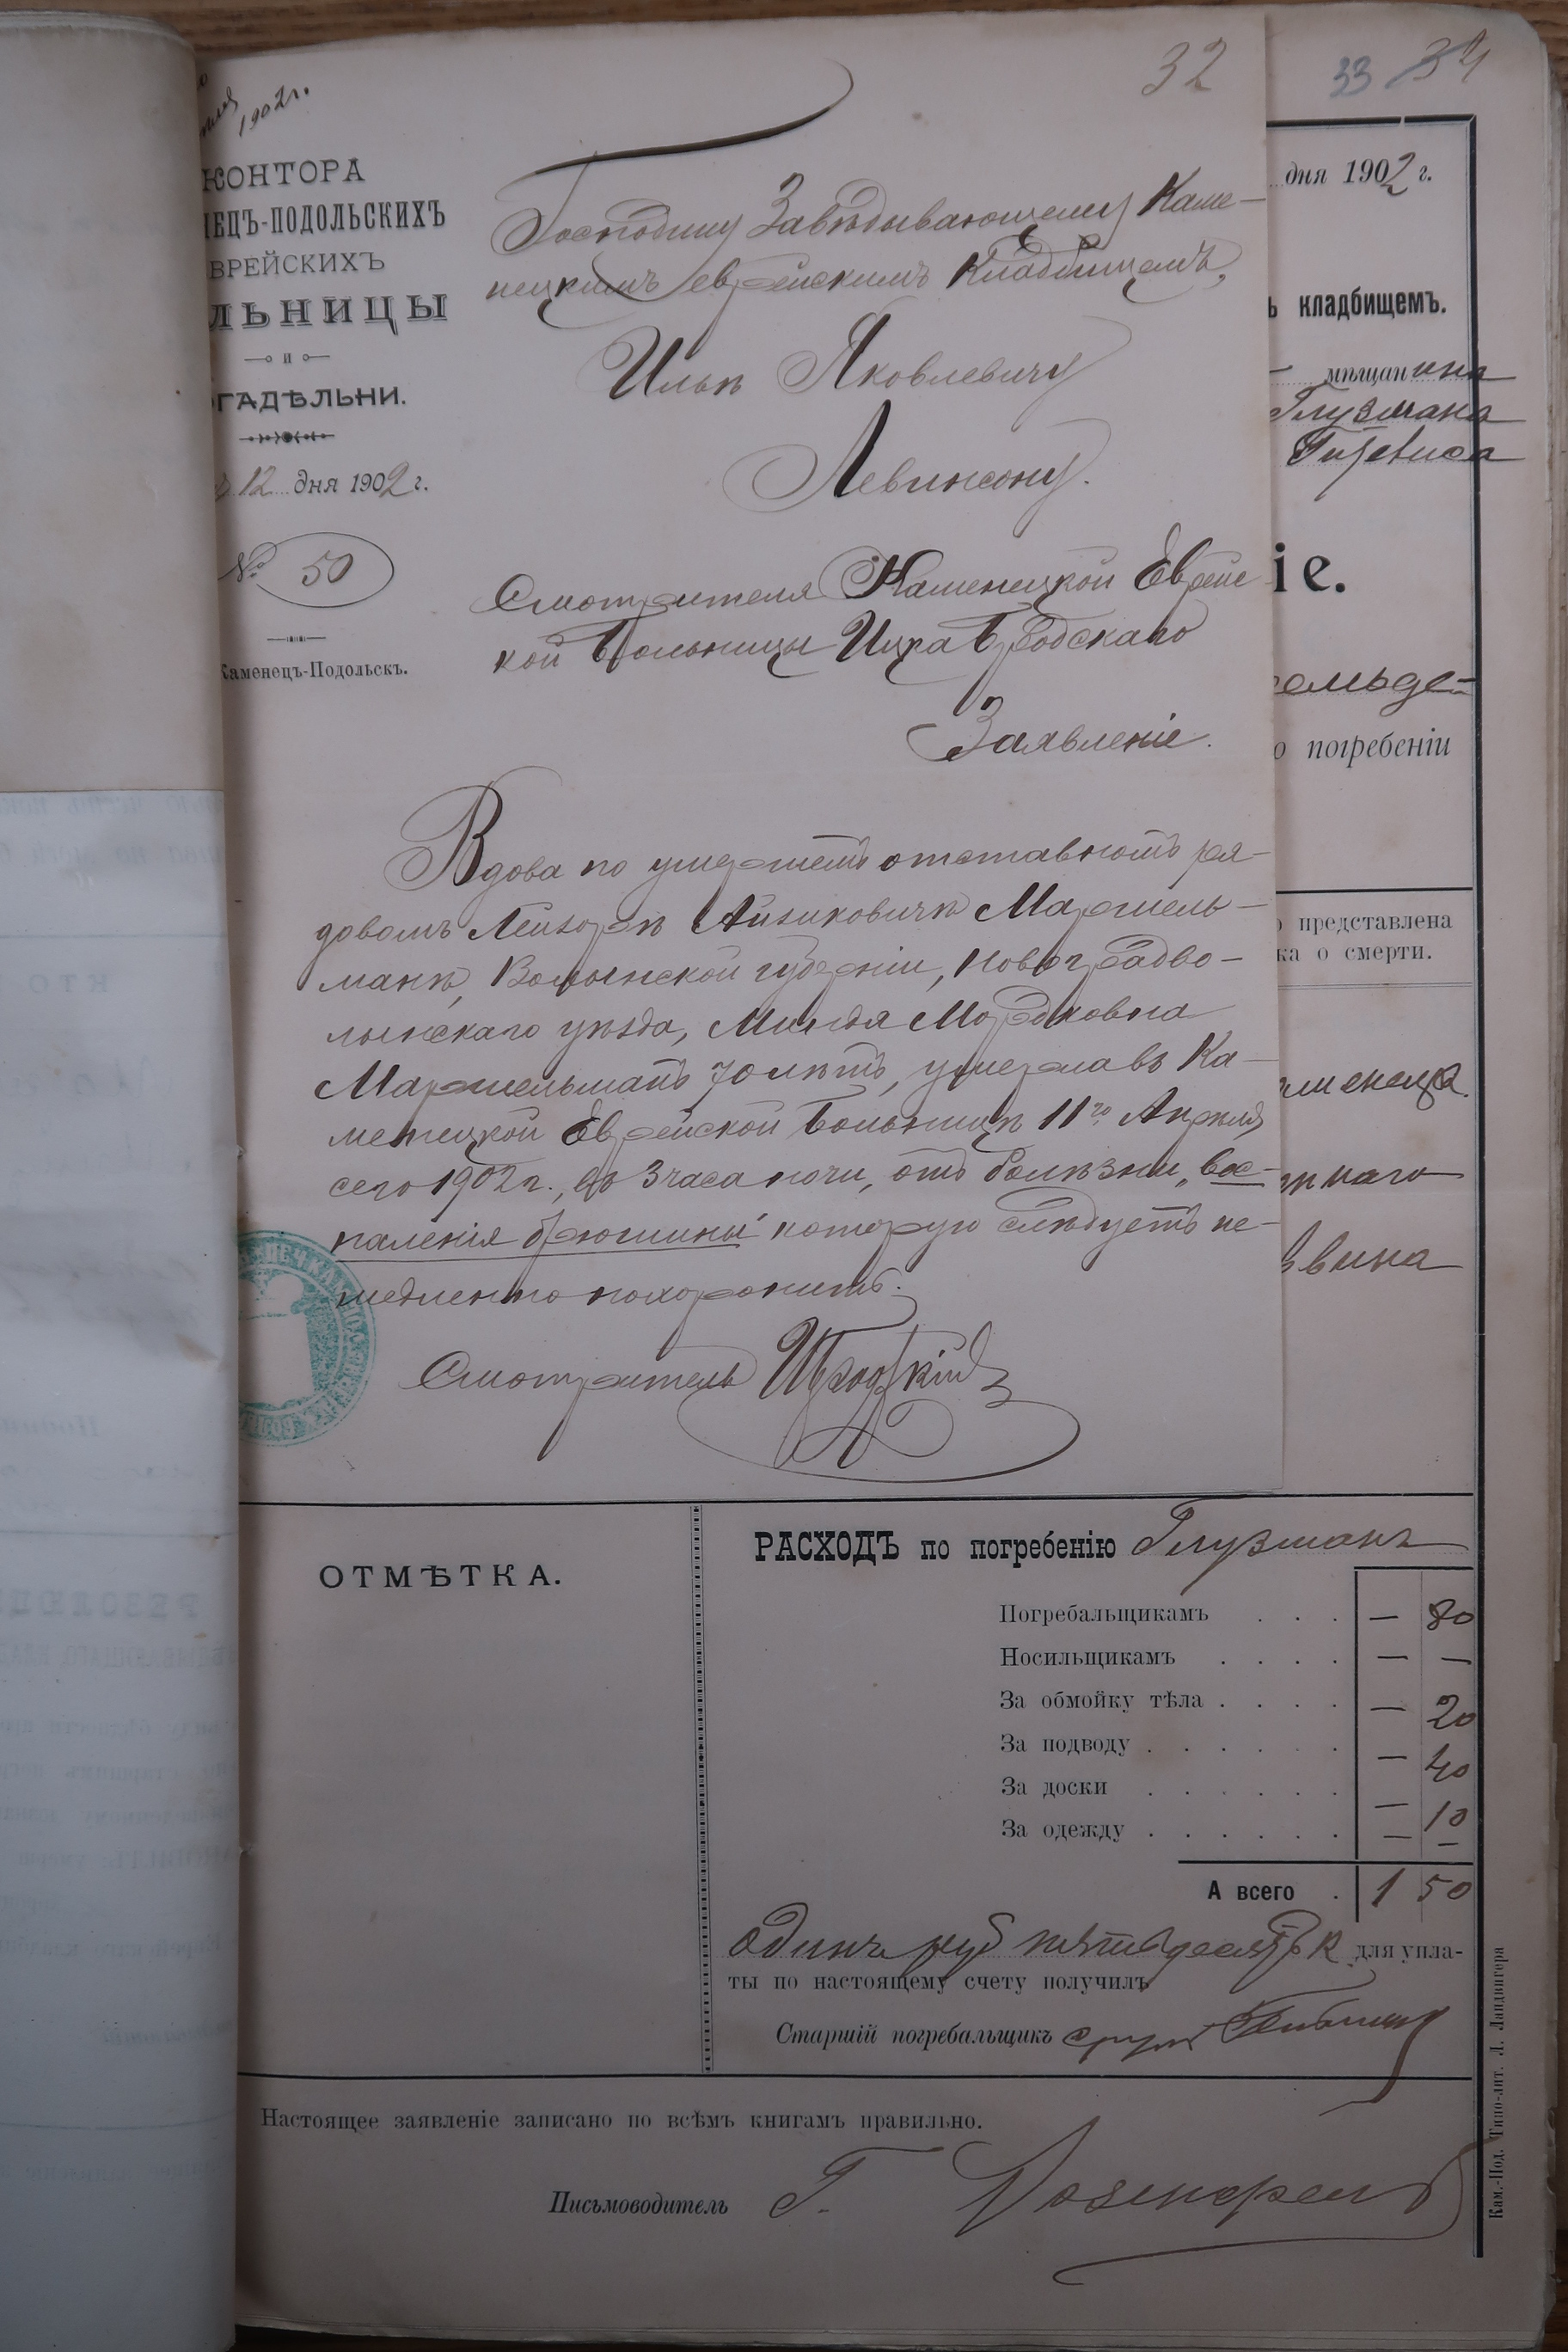 32
33 34
1902г.
КОНТОРА
НЕЦЪ-ПОДОЛЬСКИХЪ
ВРЕЙСКИХЪ
ЛЬНИЦЫ
и
ГАДѢЛЬНИ.
12 дня 1902 г.
№ 50
Каменецъ-Подольскъ.
Господину Завѣдывающему Каме-
нецкимъ еврейскимъ Кладбищемъ,
Ильѣ Яковлевичу
Левинсону.
Смотрителя Каменецкой Еврейс
кой Больницы Ицка Бродскаго
Заявленіе.
Вдова по умершемъ отставномъ ря-
довомъ Лейзорѣ Айзиковичѣ Маргель-
манѣ, Волынской губерніи, Новоградво-
лынскаго уѣзда, Миндя Мордковна
Маргельманъ 70 лѣтъ, умерла въ Ка-
менецкой Еврейской Больницѣ 11го Апрѣля
сего 1902 г., въ 3 часа ночи, отъ болѣзни „вос-
паленія брюшины" которую слѣдуетъ не-
медленно похоронить.
Смотритель
дня 1902 г.
ъ кладбищемъ.
мѣщанина
Глузмана
іе.
о погребеніи
о представлена
ка о смерти.
аменеца.
ннаго
ОТМѢТКА.
РАСХОДЪ по погребенію Глузманъ
Погребальщикамъ . . . — 80
Носильщикамъ . . . . — —
За обмойку тѣла . . . . — 20
За подводу . . . . . . — 40
За доски . . . . . . — 10
За одежду . . . . . . — —
А всего . 1 50
Одинъ руб пятьдесятъ к для упла-
ты по настоящему счету получилъ
Старшій погребальщикъ
Настоящее заявленіе записано по всѣмъ книгамъ правильно.
Письмоводитель Г.
Кам.-Под. Типо-лит. Л. Ландвигера